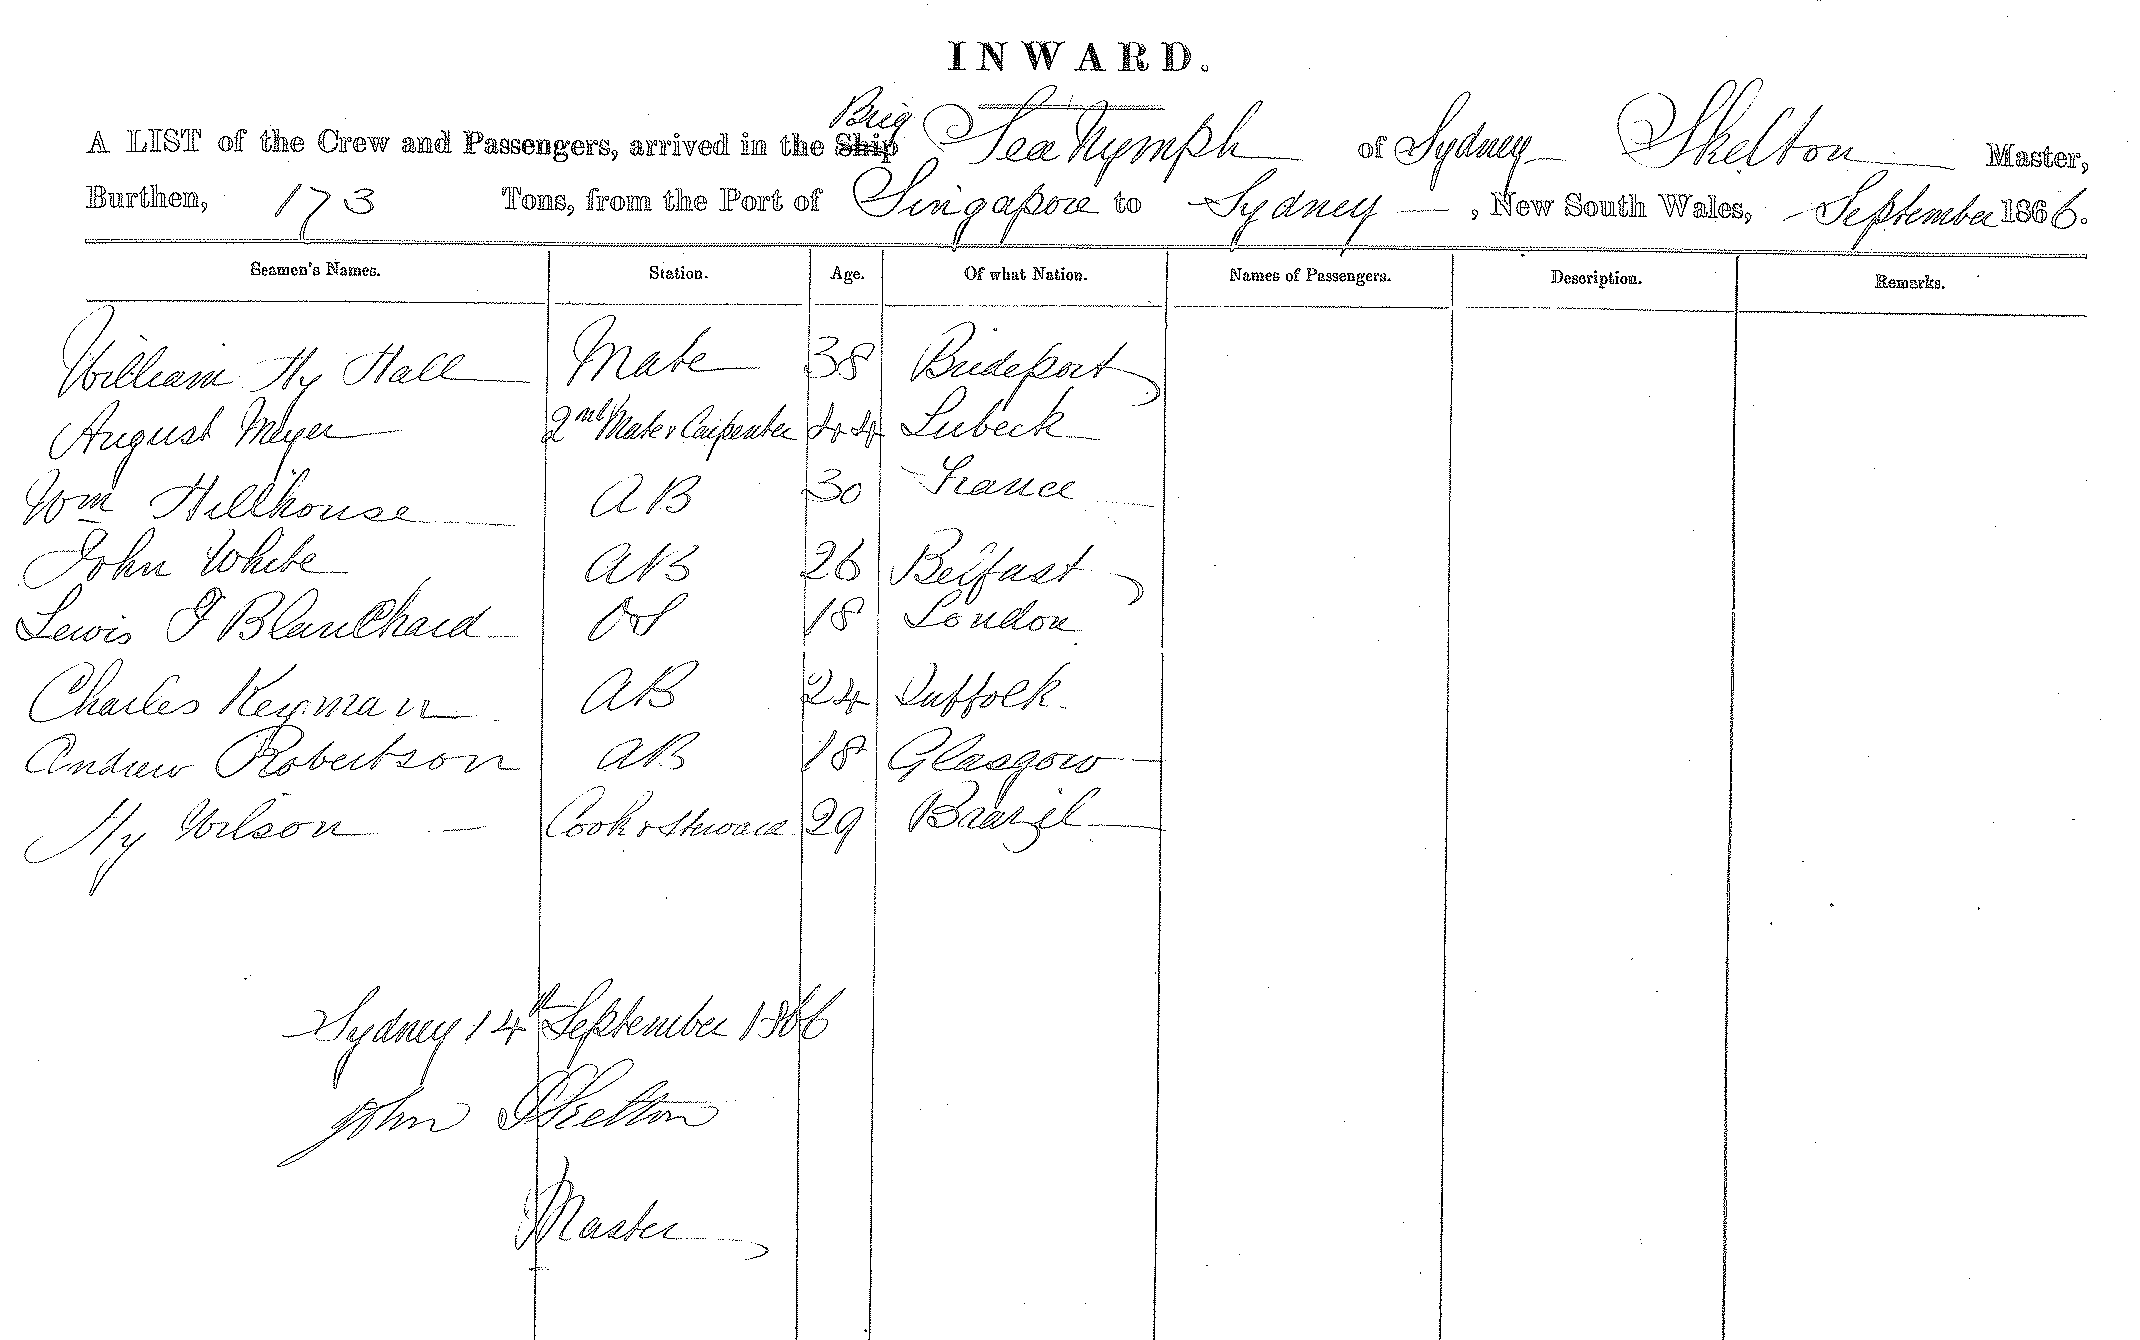 INWARD.
Brig
A LIST of the Crew and Passengers, arrived in the Ship Sea Nymph of Sydney Skelton Master,
Burthen, 173 Tons, from the Port of Singapore to Sydney, New South Wales, September 1866.
Seamen's Names. Station. Age. Of what Nation. Names of Passengers. Description. Remarks.
William Hy Hall Mate 38 Brideport
August Meyer 2nd Mate & Carpenter 44 Lubeck
Wm Hillhouse AB 30 France
John White AB 26 Belfast
Lewis F Blanchard OS 18 London
Charles Keyman AB 24 Suffolk
Andrew Robertson AB 18 Glasgow
Hy Wilson Cook & Steward 29 Braazil
Sydney 14th September 1866
John Skelton
Master